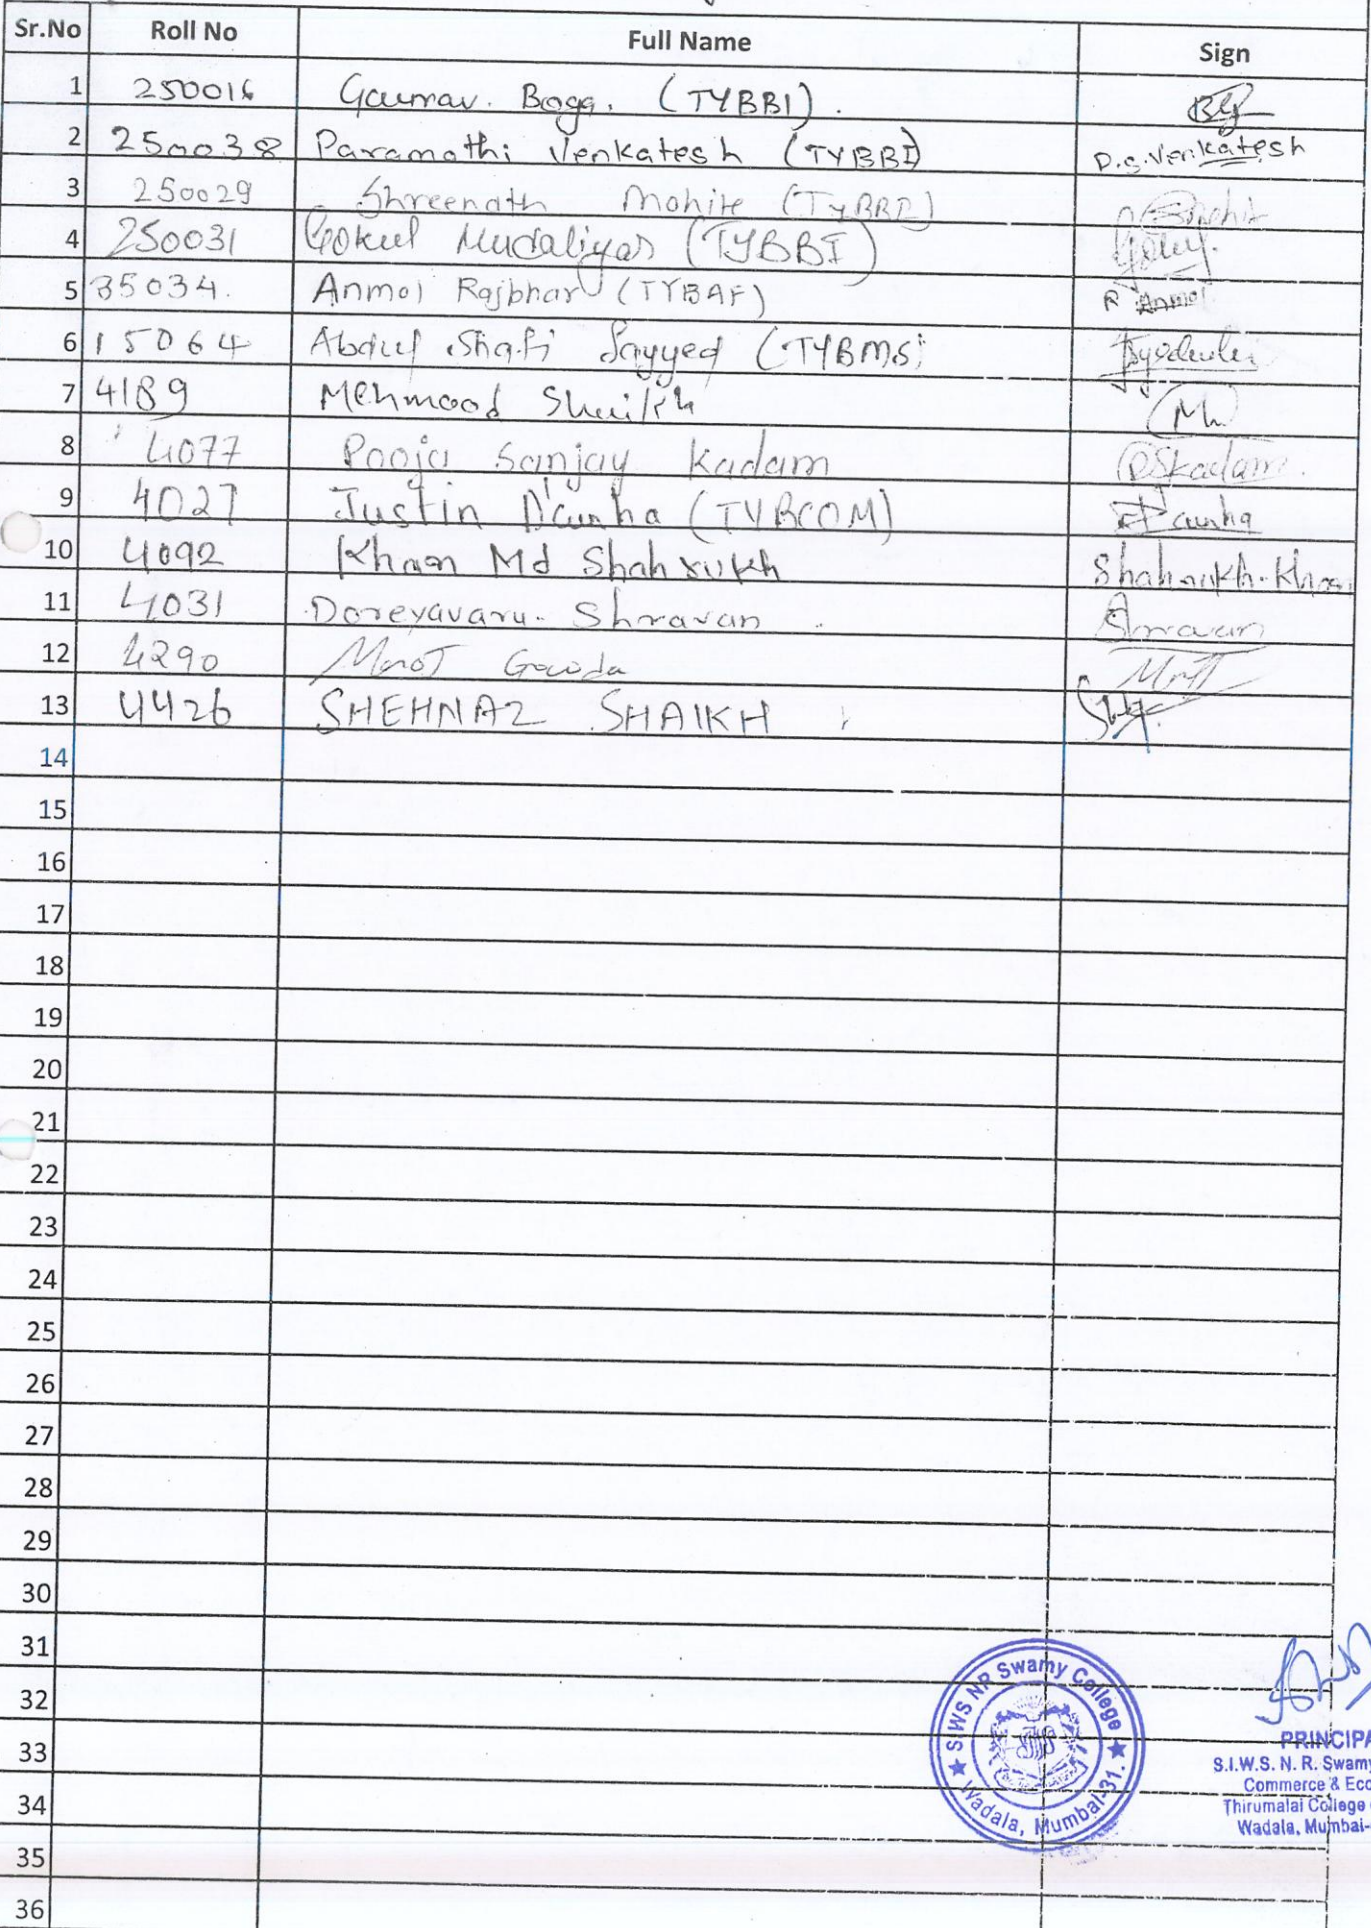 Sr.No Roll No Full Name Sign
1 250016 Gaurav. Bagg. (TYBBI).
2 2500038 Paramathi Venkatesh (TYBBI) P.S.Venkatesh
3 250029 Shreenath Mohite (TYBBI)
4 250031 Gokul Mudaliyar (TYBBI)
5 35034. Anmol Rajbhar (TYBAF) R Anmol
6 15064 Abdul Shafi Sayyed (TYBMS)
7 4189 Mehmood Shaikh
8 4077 Pooja Sanjay Kadam PSKadam.
9 4027 Justin D'cunha (TYBCOM)
10 4092 Khan Md Shahrukh Shahrukh.Khan
11 4031 Doreyavaru. Shravan Shravan
12 4290 Gowda
13 4426 SHEHNAZ SHAIKH
14
15
16
17
18
19
20
21
22
23
24
25
26
27
28
29
30
31
32
33
34
35
36
SIWS NR Swamy College
Wadala, Mumbai-31.
PRINCIPA
S.I.W.S. N. R. Swamy
Commerce & Eco
Thirumalai College
Wadala, Mumbai-